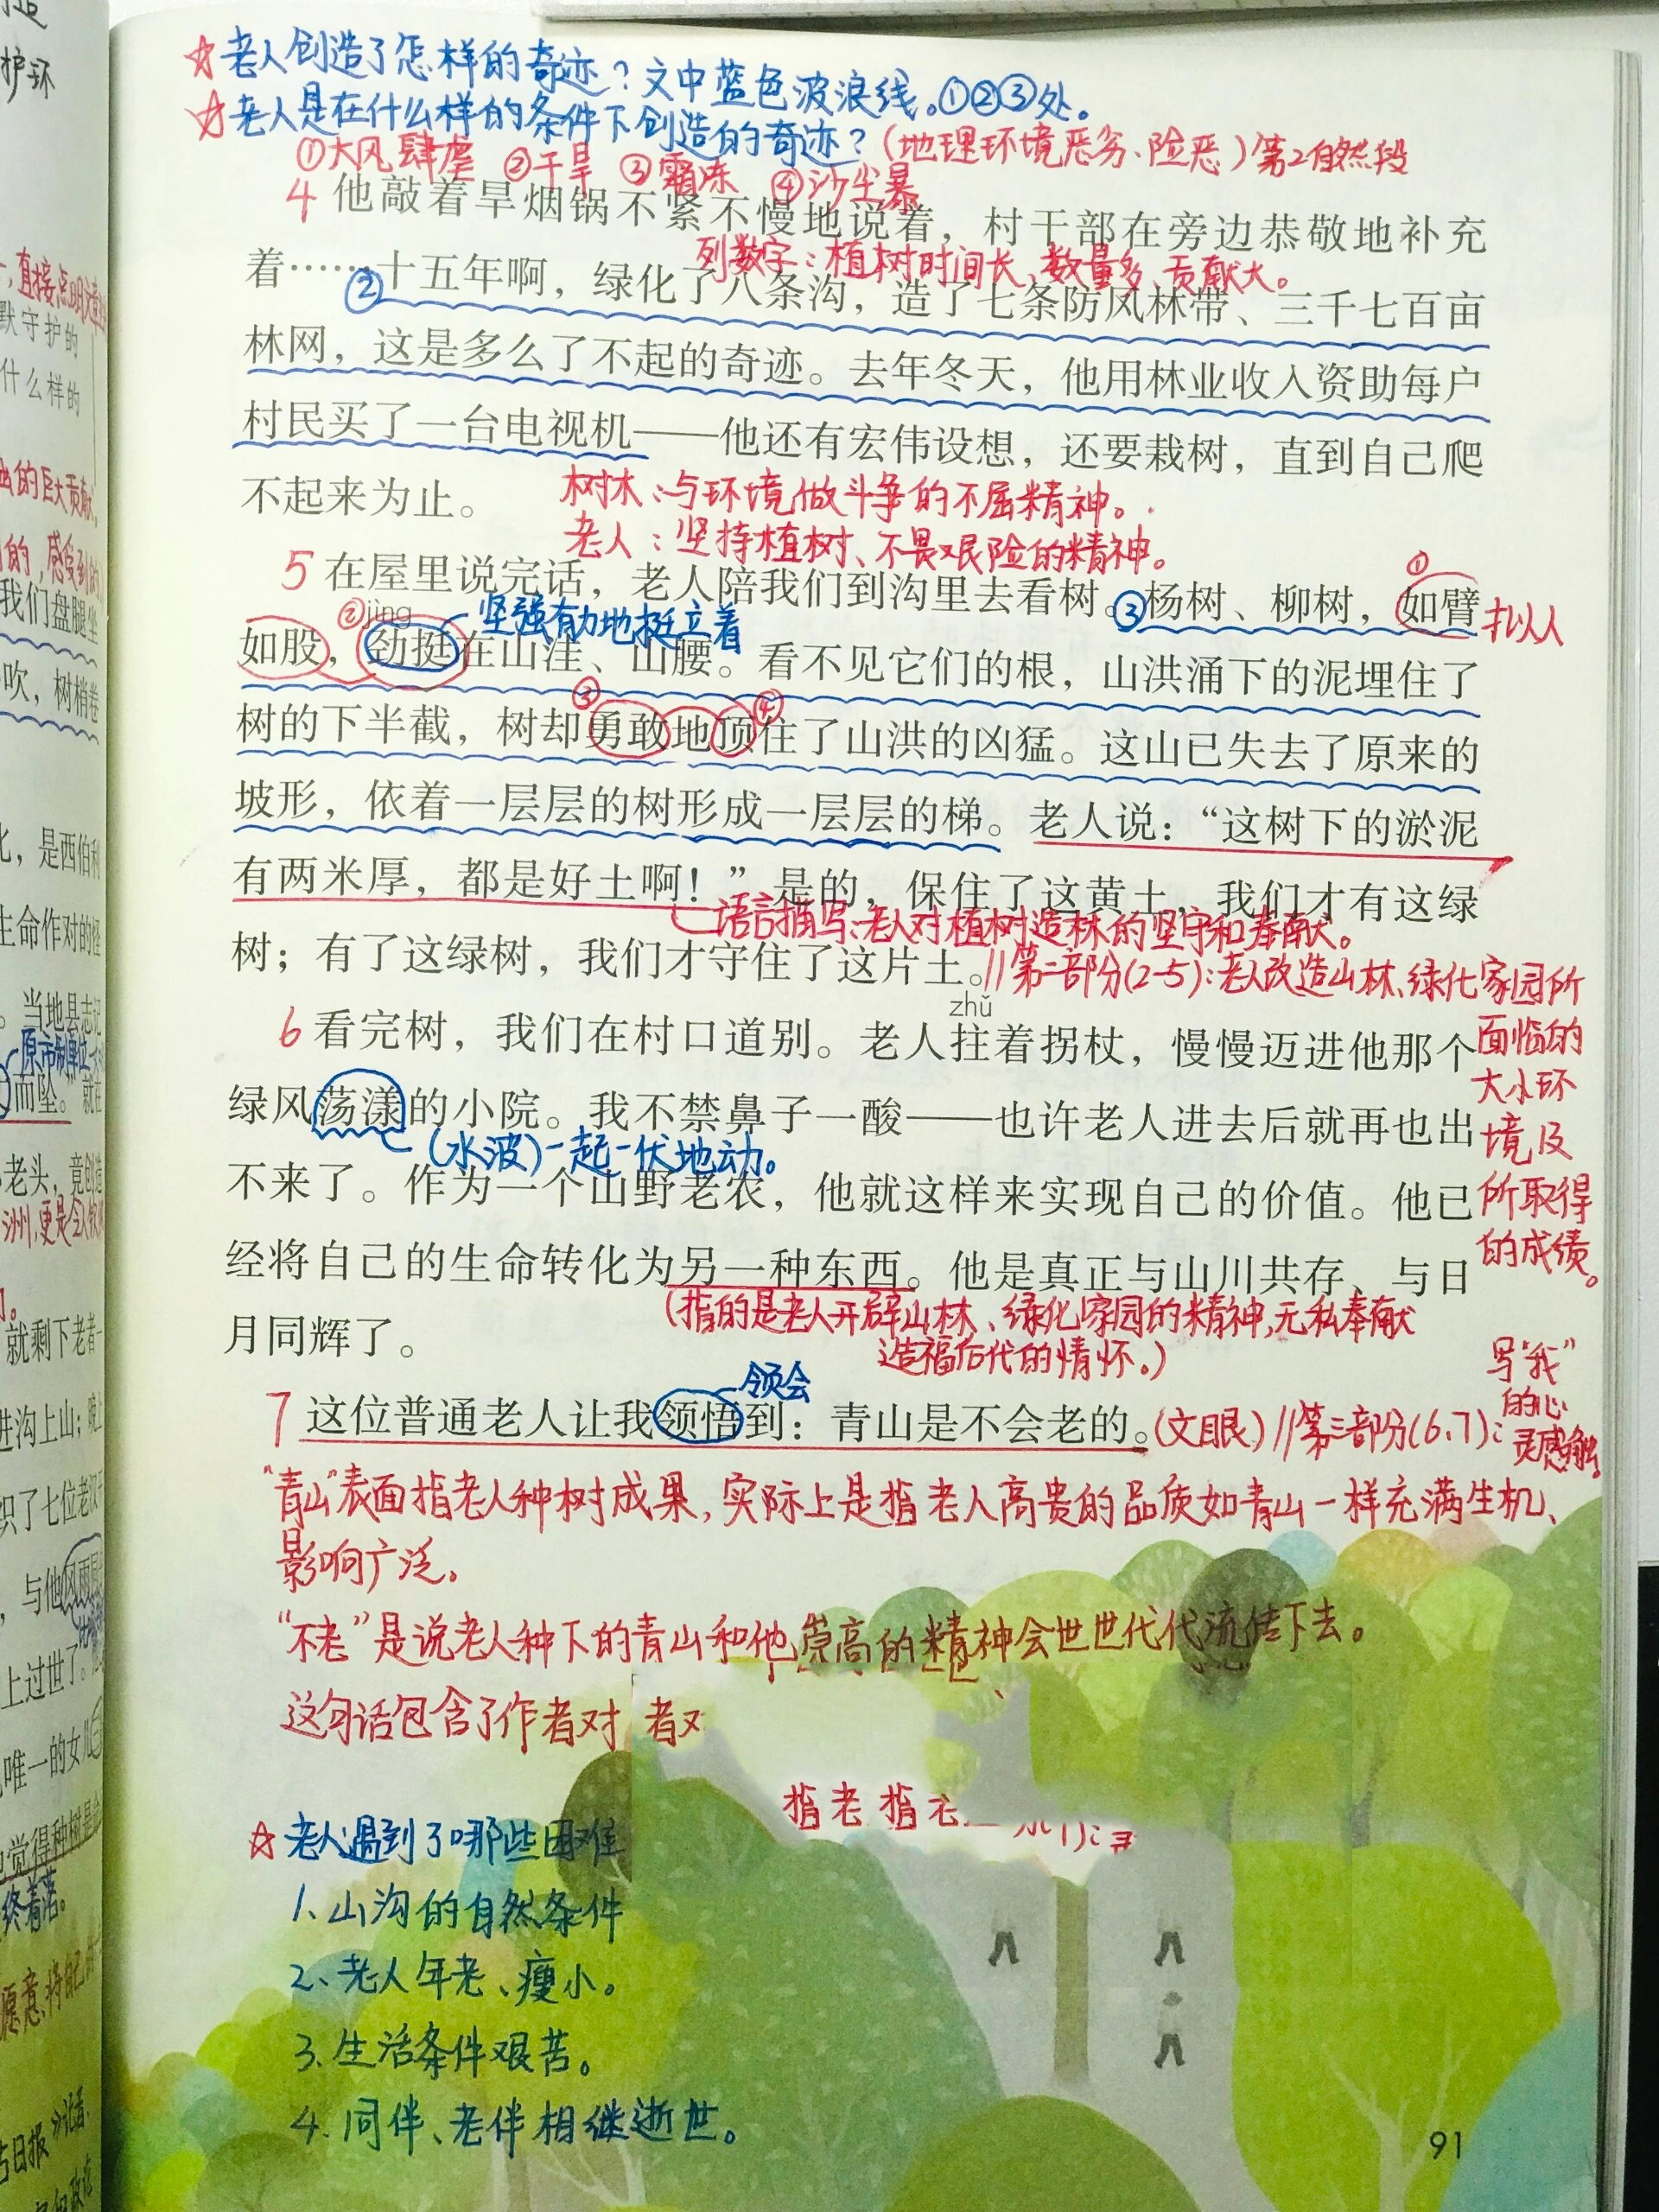 ☆老人创造了怎样的奇迹？文中蓝色波浪线。①②③处。
☆老人是在什么样的条件下创造的奇迹？(地理环境恶劣、险恶)第2自然段
①大风肆虐 ②干旱 ③霜冻 ④沙尘暴
4 他敲着旱烟锅不紧不慢地说着，村干部在旁边恭敬地补充
列数字：植树时间长、数量多、贡献大。
着……②十五年啊，绿化了八条沟，造了七条防风林带、三千七百亩
林网，这是多么了不起的奇迹。去年冬天，他用林业收入资助每户
村民买了一台电视机——他还有宏伟设想，还要栽树，直到自己爬
不起来为止。
树木：与环境做斗争的不屈精神。
老人：坚持植树、不畏艰险的精神。
5 在屋里说完话，老人陪我们到沟里去看树。③杨树、柳树，如臂
①
拟人
②jìng
坚强有力地挺立着
如股，劲挺在山洼、山腰。看不见它们的根，山洪涌下的泥埋住了
③ ④
树的下半截，树却勇敢地顶住了山洪的凶猛。这山已失去了原来的
坡形，依着一层层的树形成一层层的梯。老人说：“这树下的淤泥
有两米厚，都是好土啊！”是的，保住了这黄土，我们才有这绿
语言描写：老人对植树造林的坚守和奉献。
树；有了这绿树，我们才守住了这片土。//第二部分(2-5)：老人改造山林、绿化家园所
面临的
大小环
境及
所取得
的成绩。
zhǔ
6 看完树，我们在村口道别。老人拄着拐杖，慢慢迈进他那个
绿风荡漾的小院。我不禁鼻子一酸——也许老人进去后就再也出
(水波)一起一伏地动。
不来了。作为一个山野老农，他就这样来实现自己的价值。他已
经将自己的生命转化为另一种东西。他是真正与山川共存、与日
(指的是老人开辟山林、绿化家园的精神,无私奉献
造福后代的情怀。)
月同辉了。
领会
7 这位普通老人让我领悟到：青山是不会老的。(文眼)//第三部分(6、7)：
写“我”
的心
灵感触。
“青山”表面指老人种树成果,实际上是指老人高贵的品质如青山一样充满生机、
影响广泛。
“不老”是说老人种下的青山和他崇高的精神会世世代代流传下去。
这句话包含了作者对
者对
指老 指老
☆老人遇到了哪些困难
1、山沟的自然条件
2、老人年老、瘦小。
3、生活条件艰苦。
4、同伴、老伴相继逝世。
91
护环
直接点明
默守护的
什么样的
的巨大贡献,
的,感受到
我们盘腿坐
吹，树梢卷
，是西伯利
生命作对的怪
。当地县志记
原市制单位
而坠。”就在
老头，竟创造
洲,更是令人
就剩下老者一
进沟上山；晚上
织了七位老汉
，与他风雨
上过世了。
唯一的女儿
觉得种树是
终着落。
愿意将自己
日报